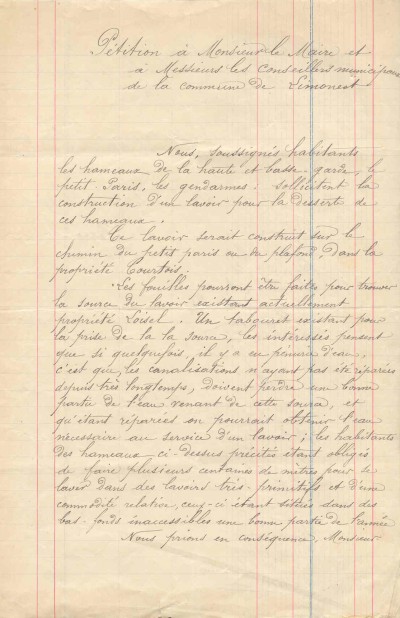 Pétition à Monsieur le Maire et
à Messieurs les Conseillers municipaux
de la commune de Limonest
Nous, soussignés habitants
les hameaux de la haute et basse garde, le
petit Paris, les gendarmes. sollicitent la
construction d'un lavoir pour la desserte de
ces hameaux.
Ce lavoir serait construit sur le
chemin du petit paris ou du plafond, dans la
propriété Courtois.
Les fouilles pourront être faites pour trouver
la source du lavoir existant actuellement
propriété Loisel. Un tabouret existant pour
la prise de la la source, les intéressés pensent
que si quelquefois il y a eu pénurie d'eau,
c'est que les canalisations n'ayant pas été réparées
depuis très longtemps, doivent perdre une bonne
partie de l'eau venant de cette source, et
qu'étant réparées on pourrait obtenir l'eau
nécessaire au service d'un lavoir; les habitants
des hameaux ci-dessus précités étant obligés
de faire plusieurs centaines de mètres pour le
laver dans des lavoirs très-primitifs et d'une
commodité relative, ceux-ci étant situés dans des
bas-fonds inaccessibles une bonne partie de l'année
Nous prions en conséquence, Monsieur